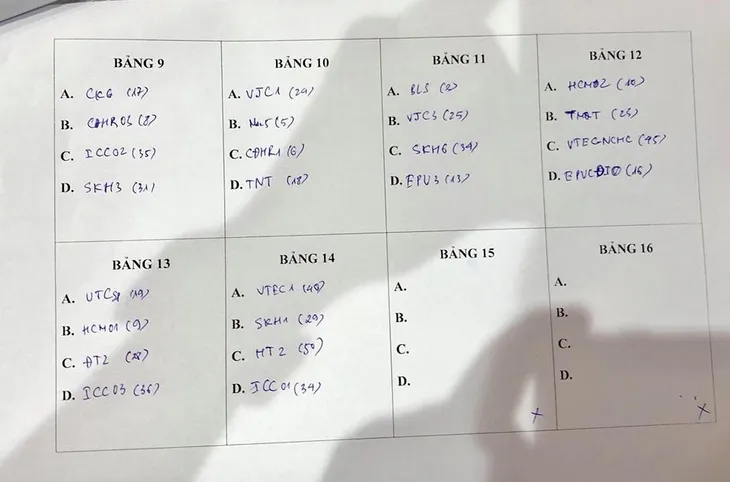 BẢNG 9
A. CK6 (17)
B. CĐHR03 (8)
C. ICC02 (35)
D. SKH3 (31)
BẢNG 10
A. VJC1 (24)
B. (5)
C. CĐHR1 (6)
D. TNT (18)
BẢNG 11
A. BLS (2)
B. VJC3 (25)
C. SKH6 (34)
D. EPU3 (13)
BẢNG 12
A. HCM02 (10)
B.
C. VTEC-NCHC (45)
D. (16)
BẢNG 13
A. (19)
B. HCM01 (9)
C. ĐT2
D. ICC03 (36)
BẢNG 14
A. VTEC1
B. SKH1 (29)
C. HT2 (50)
D. ICC01 (34)
BẢNG 15
A.
B.
C.
D.
X
BẢNG 16
A.
B.
C.
D.
X